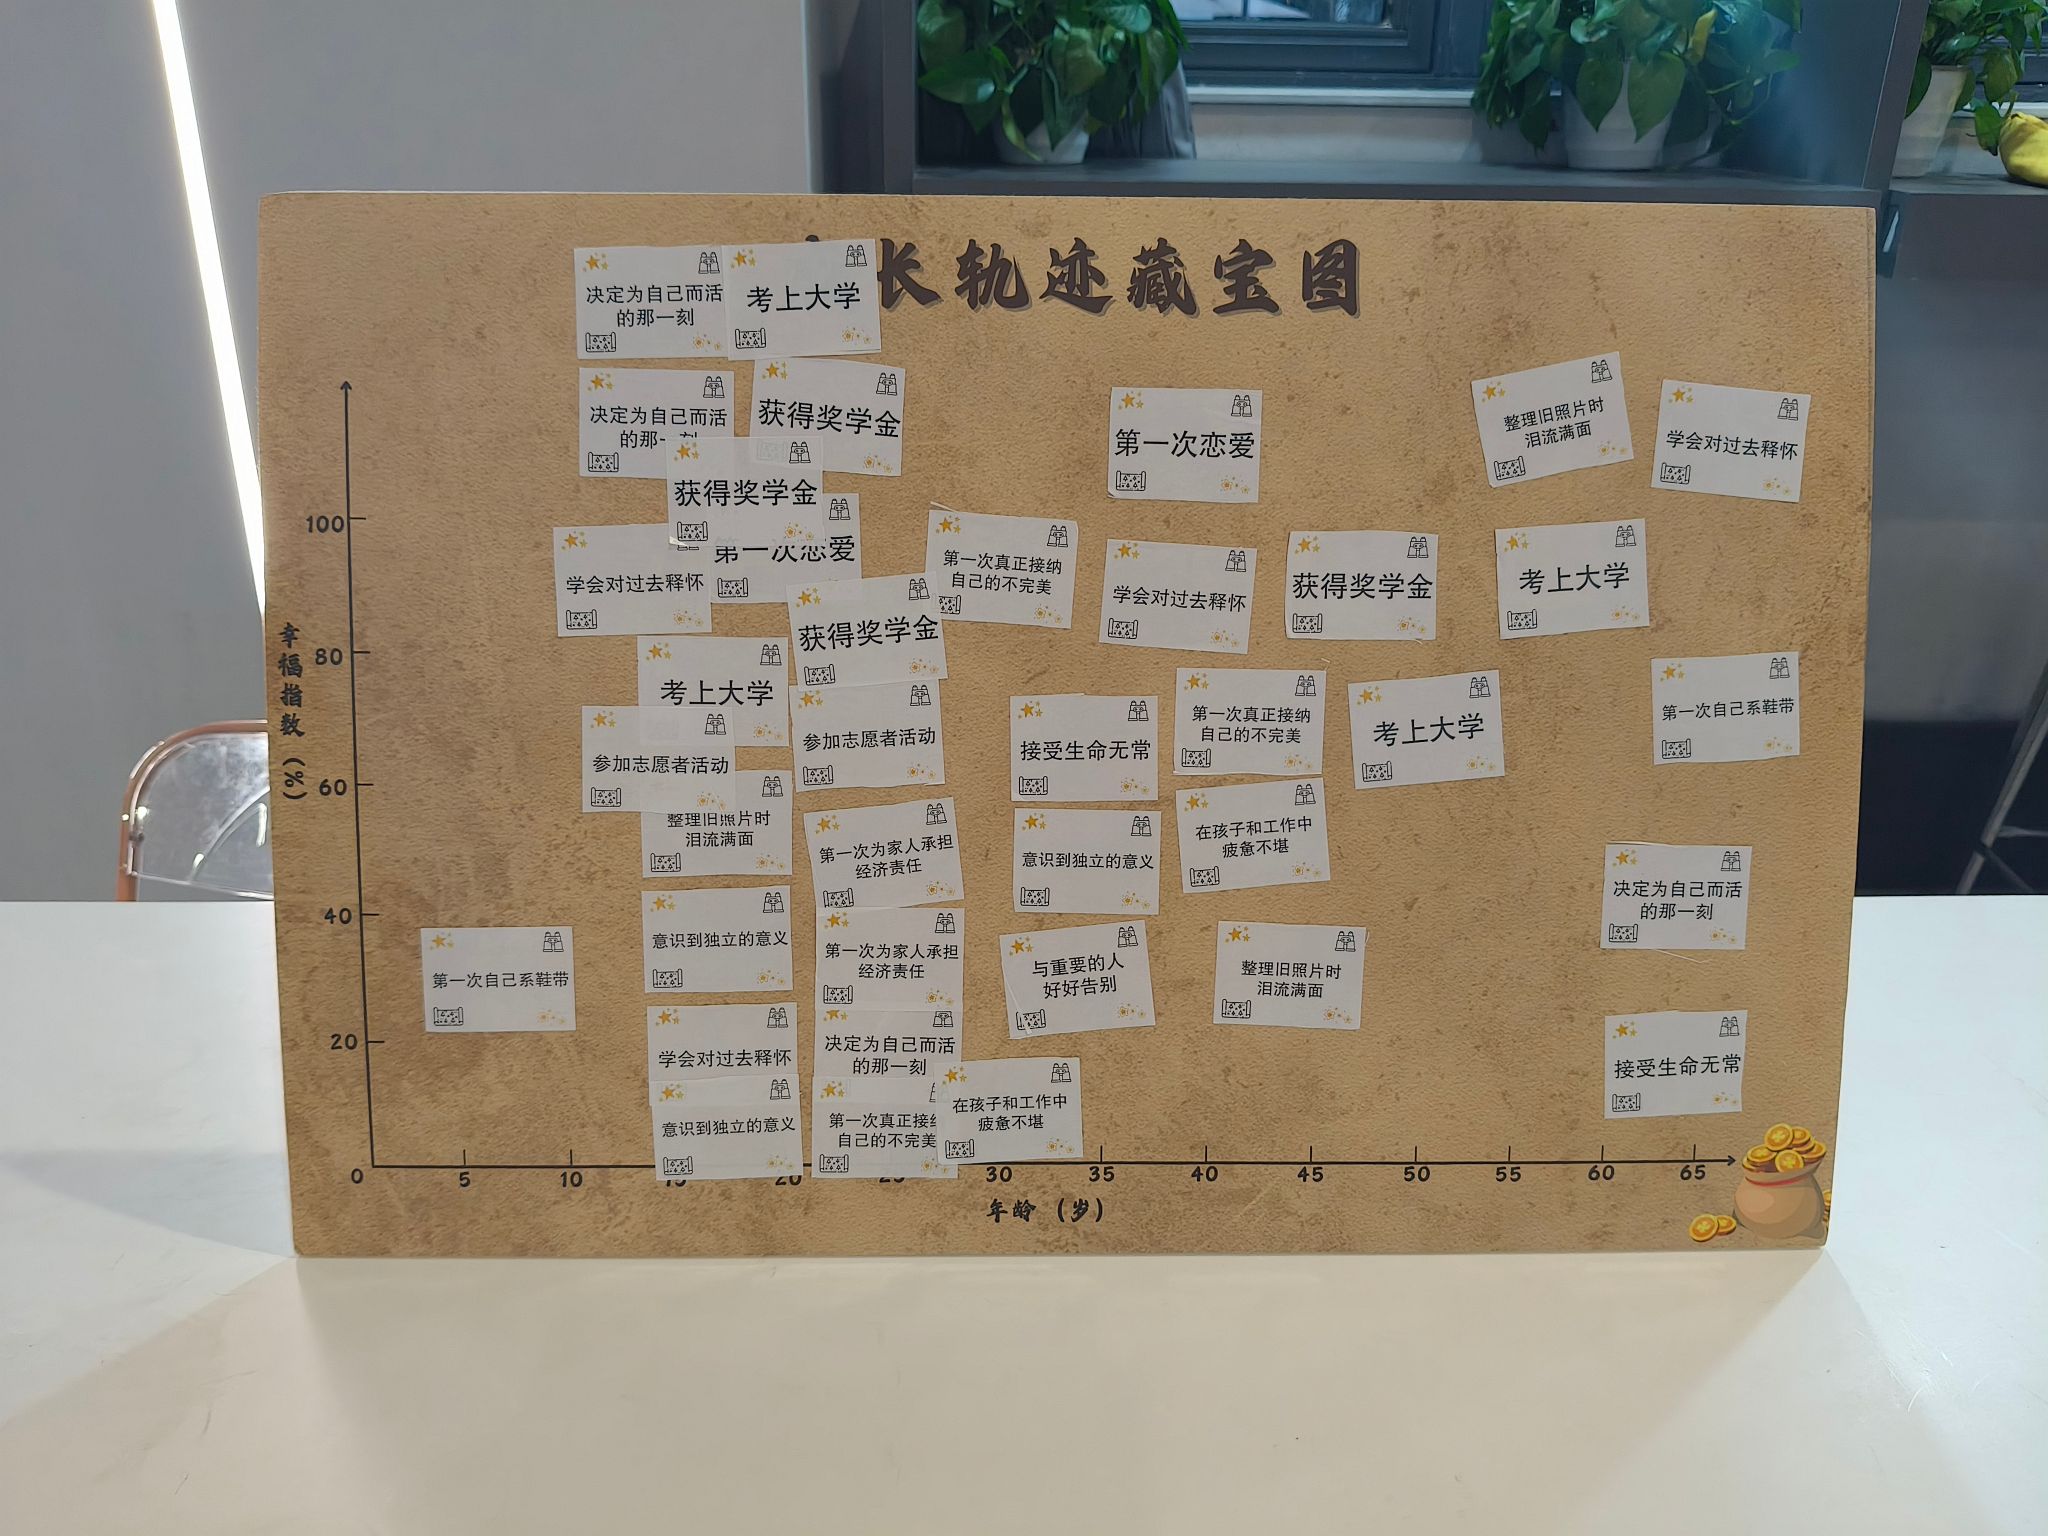 长轨迹藏宝图
决定为自己而活
的那一刻
考上大学
决定为自己而活
的那一刻
获得奖学金
第一次恋爱
整理旧照片时
泪流满面
学会对过去释怀
获得奖学金
100
学会对过去释怀
第一次恋爱
第一次真正接纳
自己的不完美
学会对过去释怀
获得奖学金
考上大学
获得奖学金
幸福指数（%）
80
考上大学
参加志愿者活动
接受生命无常
第一次真正接纳
自己的不完美
考上大学
第一次自己系鞋带
参加志愿者活动
60
整理旧照片时
泪流满面
第一次为家人承担
经济责任
意识到独立的意义
在孩子和工作中
疲惫不堪
决定为自己而活
的那一刻
40
意识到独立的意义
第一次为家人承担
经济责任
与重要的人
好好告别
整理旧照片时
泪流满面
第一次自己系鞋带
20
学会对过去释怀
决定为自己而活
的那一刻
接受生命无常
意识到独立的意义
第一次真正接纳
自己的不完美
在孩子和工作中
疲惫不堪
0 5 10 15 20 25 30 35 40 45 50 55 60 65
年龄（岁）